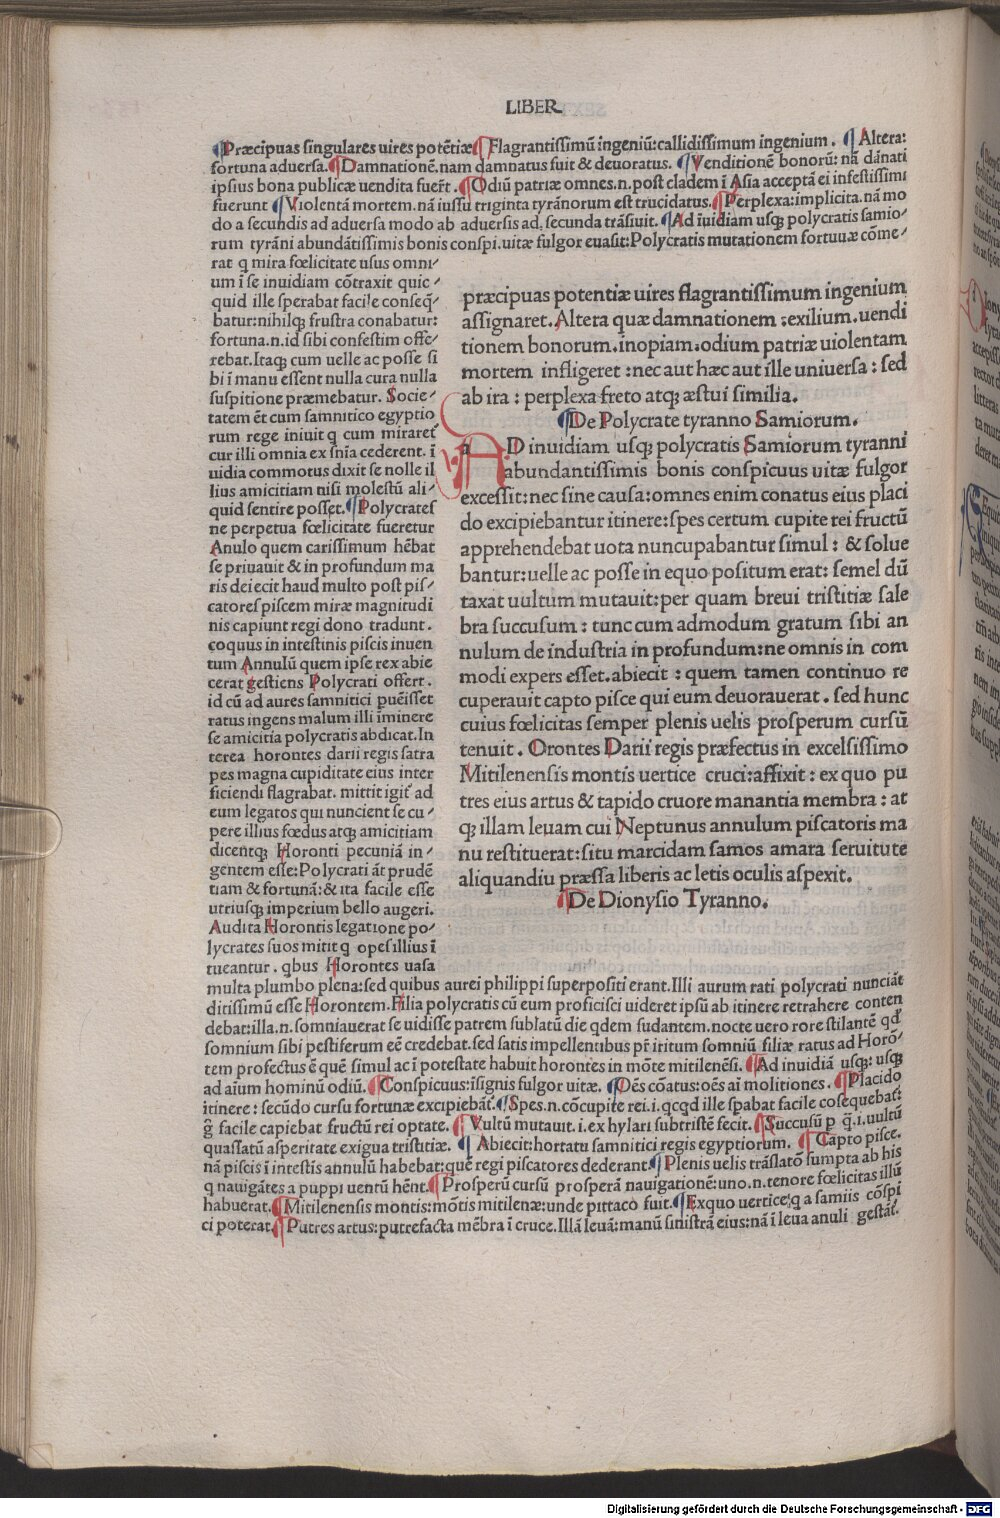 LIBER
¶Præcipuas singulares uires potētiæ ¶Flagrantissimū ingeniū:callidissimum ingenium. ¶Altera:
fortuna aduersa.¶Damnationē.nam damnatus fuit & deuoratus. ¶Venditionē bonorū: nā dānati
ipsius bona publicæ uendita fuer̄t .¶Odiū patriæ omnes.n.post cladem ī Asia acceptā ei infestissimi
fuerunt ¶Violentā mortem.nā iussu triginta tyrānorum est trucidatus.¶Perplexa:implicita.nā mo
do a secundis ad aduersa modo ab aduersis ad. secunda trāsiuit.¶Ad īuidiam usq; polycratis samio-
rum tyrāni abundātissimis bonis conspi.uitæ fulgor euasit:Polycratis mutationem fortuuæ cōme-
rat q mira fœlicitate usus omni-
um ī se inuidiam cōtraxit quic-
quid ille sperabat facile conseq̄-
batur:nihilq; frustra conabatur:
fortuna.n.id sibi confestim offe-
rebat.Itaq; cum uelle ac posse si
bi ī manu essent nulla cura nulla
suspitione præmebatur. Socie-
tatem ēt cum samnitico egyptio
rum rege iniuit q cum miraret̄
cur illi omnia ex sn̄ia cederent. ī
uidia commotus dixit se nolle il
lius amicitiam nisi molestū ali-
quid sentire posset.¶Polycrates
ne perpetua fœlicitate fueretur
Anulo quem carissimum hēbat
se priuauit & in profundum ma
ris deiecit haud multo post pis-
catores piscem miræ magnitudi
nis capiunt regi dono tradunt.
coquus in intestinis piscis inuen
tum Annulū quem ipse rex abie
cerat gestiens Polycrati offert.
id cū ad aures samnitici puēisset
ratus ingens malum illi iminere
se amicitia polycratis abdicat.In
terea horontes darii regis satra
pes magna cupiditate eius inter
ficiendi flagrabat. mittit igit̄ ad
eum legatos qui nuncient se cu-
pere illius fœdus atq; amicitiam
dicentq; Horonti pecuniā in-
gentem esse:Polycrati āt prudē
tiam & fortunā:& ita facile esse
utriusq; imperium bello augeri.
Audita Horontis legatione po-
lycrates suos mitit q opes illius ī
tueantur . qbus Horontes uasa
præcipuas potentiæ uires flagrantissimum ingenium
assignaret.Altera quæ damnationem :exilium.uendi
tionem bonorum.inopiam:odium patriæ uiolentam
mortem infligeret :nec aut hæc aut ille uniuersa : sed
ab ira : perplexa freto atq; æstui similia.
¶De Polycrate tyranno Samiorum.
AD inuidiam usq; polycratis Samiorum tyranni
abundantissimis bonis conspicuus uitæ fulgor
excessit:nec sine causa:omnes enim conatus eius placi
do excipiebantur itinere:spes certum cupite rei fructū
apprehendebat uota nuncupabantur simul : & solue
bantur:uelle ac posse in equo positum erat: semel dū
taxat uultum mutauit:per quam breui tristitiæ sale
bra succusum : tunc cum admodum gratum sibi an
nulum de industria in profundum:ne omnis in com
modi expers esset.abiecit : quem tamen continuo re
cuperauit capto pisce qui eum deuorauerat . sed hunc
cuius fœlicitas semper plenis uelis prosperum cursū
tenuit . Orontes Darii regis præfectus in excelsissimo
Mitilenensis montis uertice cruci:affixit : ex quo pu
tres eius artus & tapido cruore manantia membra : at
q; illam leuam cui Neptunus annulum piscatoris ma
nu restituerat:situ marcidam samos amara seruitute
aliquandiu præssa liberis ac letis oculis aspexit.
¶De Dionysio Tyranno.
multa plumbo plena:sed quibus aurei philippi superpositi erant.Illi aurum rati polycrati nunciāt
ditissimū esse Horontem.Filia polycratis cū eum proficisci uideret ipsū ab itinere retrahere conten
debat:illa.n.somniauerat se uidisse patrem sublatū die qdem sudantem.nocte uero rore stilantē qd̄
somnium sibi pestiferum eē credebat.sed satis impellentibus pr̄ iritum somniū filiæ ratus ad Horō-
tem profectus ē quē simul ac ī potestate habuit horontes in mōte mitilenēsi. ¶Ad inuidiā usq: usq;
ad aīum hominū odiū.¶Conspicuus:īsignis fulgor uitæ. ¶Oēs cōatus:oēs aī molitiones. ¶Placido
itinere : secūdo cursu fortunæ excipiebāt̄.¶Spes.n.cōcupite rei.i.qcqd ille spabat facile cōsequebat̄:
g̊ facile capiebat fructū rei optate. ¶Vultū mutauit.i.ex hylari subtristē fecit. ¶Succusū p q̄.i.uultū
quassatū asperitate exigua tristitiæ. ¶Abiecit:hortatu samnitici regis egyptiorum. ¶Capto pisce.
nā piscis ī intestis annulū habebat:quē regi piscatores dederant.¶Plenis uelis trāslatō sumpta ab his
q nauigātes a puppi uentū hēnt.¶Prosperū cursū prosperā nauigationē:uno.n.tenore fœlicitas illū
habuerat.¶Mitilenensis montis:mōtis mitilenæ:unde pittaco fuit.¶Exquo uertice:q a samiis cōspi
ci poterat.¶Putres artus:putrefacta mēbra ī cruce.Illā leuā:manū sinistrā eius:nā ī leua anuli gestāt̄.
Digitalisierung gefördert durch die Deutsche Forschungsgemeinschaft - DFG